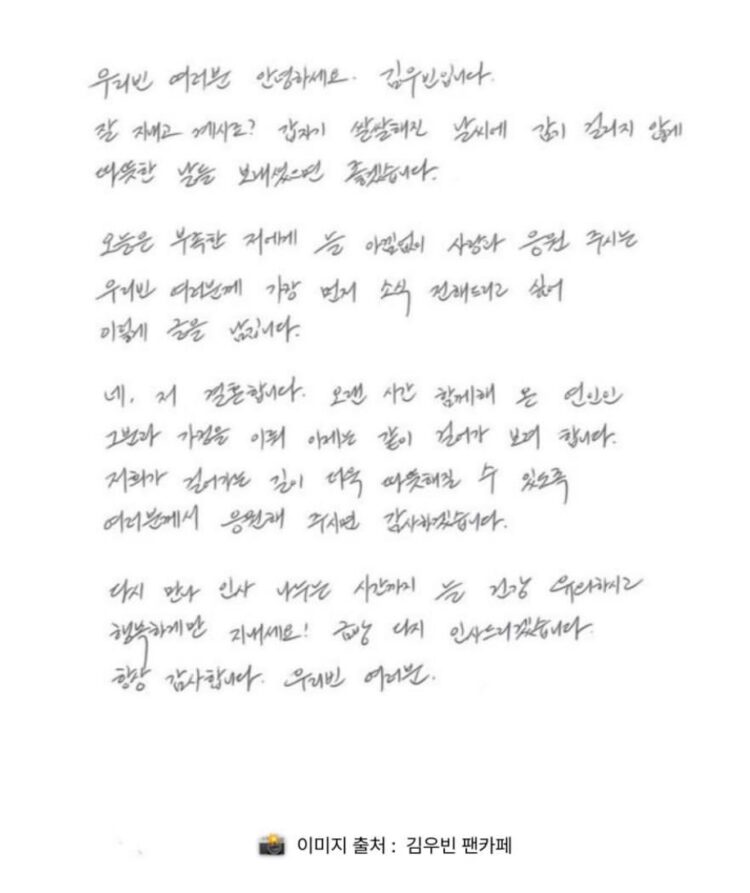 우리빈 여러분 안녕하세요. 김우빈입니다.
잘 지내고 계시죠? 갑자기 쌀쌀해진 날씨에 감기 걸리지 않게
따뜻한 날들 보내셨으면 좋겠습니다.
오늘은 부족한 저에게 늘 아낌없이 사랑과 응원 주시는
우리빈 여러분께 가장 먼저 소식 전해드리고 싶어
이렇게 글을 남깁니다.
네, 저 결혼합니다. 오랜 시간 함께해 온 연인인
그분과 가정을 이뤄 이제는 같이 걸어가 보려 합니다.
저희가 걸어가는 길이 더욱 따뜻해질 수 있도록
여러분께서 응원해 주시면 감사하겠습니다.
다시 만나 인사 나누는 시간까지 늘 건강 유의하시고
행복하게만 지내세요! 금방 다시 인사드리겠습니다.
항상 감사합니다. 우리빈 여러분.
이미지 출처 : 김우빈 팬카페